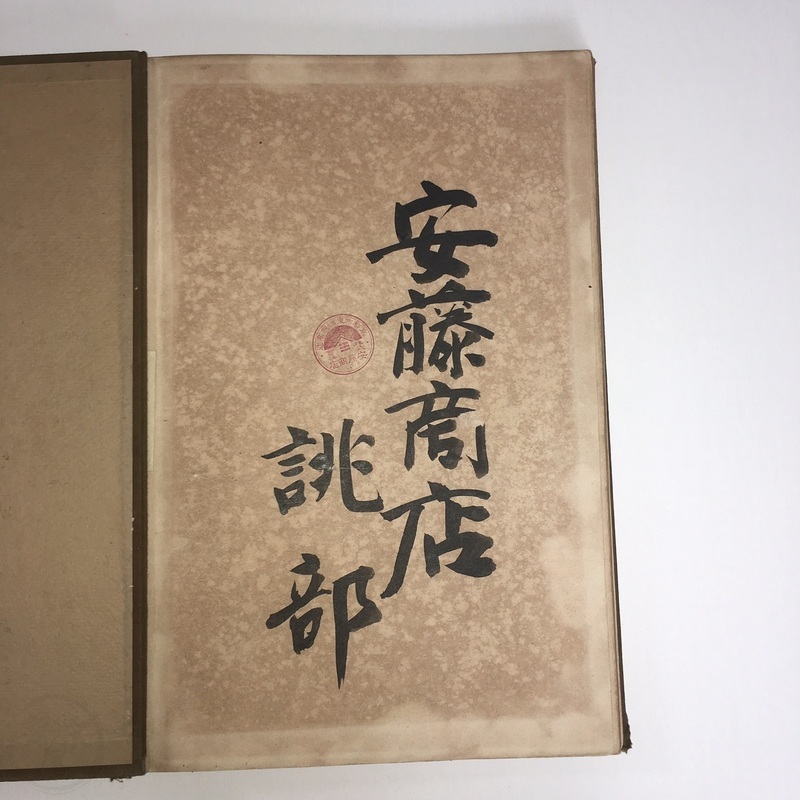 安藤商店
誂部